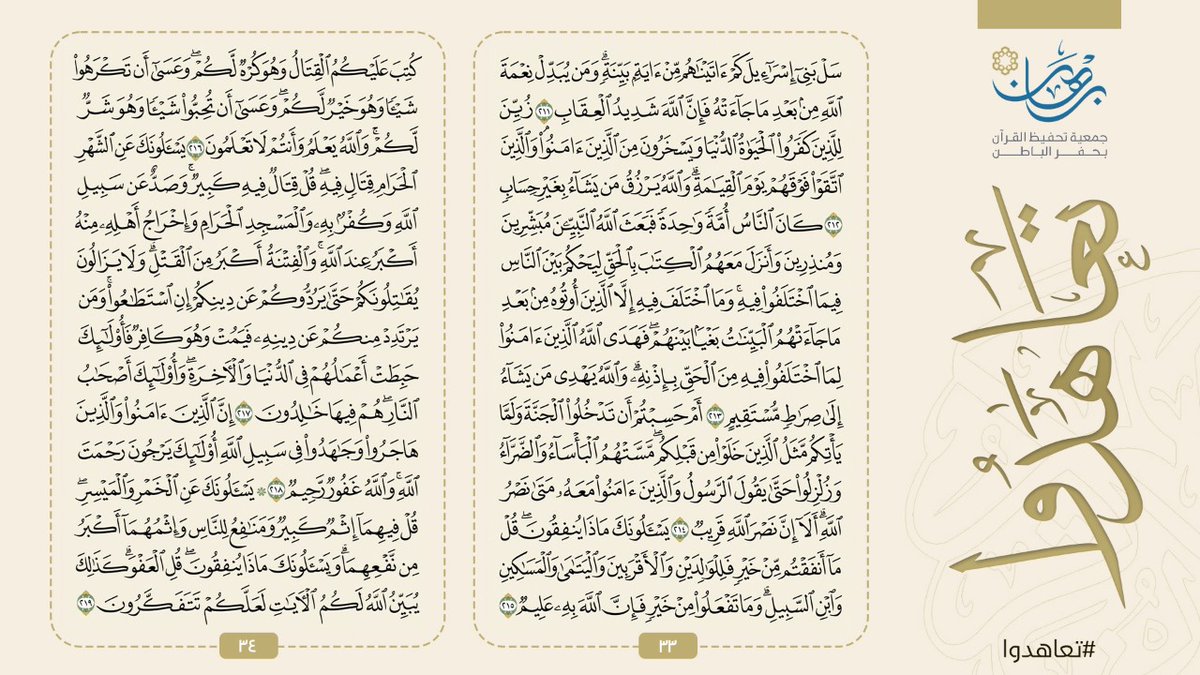 برهان
جمعية تحفيظ القرآن
بحفر الباطن
تعاهدوا
#تعاهدوا
سَلْ بَنِىٓ إِسْرَٰٓءِيلَ كَمْ ءَاتَيْنَٰهُم مِّنْ ءَايَةٍۭ بَيِّنَةٍۗ وَمَن يُبَدِّلْ نِعْمَةَ
ٱللَّهِ مِنۢ بَعْدِ مَا جَآءَتْهُ فَإِنَّ ٱللَّهَ شَدِيدُ ٱلْعِقَابِ ٢١١ زُيِّنَ
لِلَّذِينَ كَفَرُوا۟ ٱلْحَيَوٰةُ ٱلدُّنْيَا وَيَسْخَرُونَ مِنَ ٱلَّذِينَ ءَامَنُوا۟ۘ وَٱلَّذِينَ
ٱتَّقَوْا۟ فَوْقَهُمْ يَوْمَ ٱلْقِيَٰمَةِۗ وَٱللَّهُ يَرْزُقُ مَن يَشَآءُ بِغَيْرِ حِسَابٍ
٢١٢ كَانَ ٱلنَّاسُ أُمَّةً وَٰحِدَةً فَبَعَثَ ٱللَّهُ ٱلنَّبِيِّۦنَ مُبَشِّرِينَ
وَمُنذِرِينَ وَأَنزَلَ مَعَهُمُ ٱلْكِتَٰبَ بِٱلْحَقِّ لِيَحْكُمَ بَيْنَ ٱلنَّاسِ
فِيمَا ٱخْتَلَفُوا۟ فِيهِۚ وَمَا ٱخْتَلَفَ فِيهِ إِلَّا ٱلَّذِينَ أُوتُوهُ مِنۢ بَعْدِ
مَا جَآءَتْهُمُ ٱلْبَيِّنَٰتُ بَغْيًۢا بَيْنَهُمْۖ فَهَدَى ٱللَّهُ ٱلَّذِينَ ءَامَنُوا۟
لِمَا ٱخْتَلَفُوا۟ فِيهِ مِنَ ٱلْحَقِّ بِإِذْنِهِۦۗ وَٱللَّهُ يَهْدِى مَن يَشَآءُ
إِلَىٰ صِرَٰطٍ مُّسْتَقِيمٍ ٢١٣ أَمْ حَسِبْتُمْ أَن تَدْخُلُوا۟ ٱلْجَنَّةَ وَلَمَّا
يَأْتِكُم مَّثَلُ ٱلَّذِينَ خَلَوْا۟ مِن قَبْلِكُمۖ مَّسَّتْهُمُ ٱلْبَأْسَآءُ وَٱلضَّرَّآءُ
وَزُلْزِلُوا۟ حَتَّىٰ يَقُولَ ٱلرَّسُولُ وَٱلَّذِينَ ءَامَنُوا۟ مَعَهُۥ مَتَىٰ نَصْرُ
ٱللَّهِۗ أَلَآ إِنَّ نَصْرَ ٱللَّهِ قَرِيبٌ ٢١٤ يَسْـَٔلُونَكَ مَاذَا يُنفِقُونَۖ قُلْ
مَآ أَنفَقْتُم مِّنْ خَيْرٍ فَلِلْوَٰلِدَيْنِ وَٱلْأَقْرَبِينَ وَٱلْيَتَٰمَىٰ وَٱلْمَسَٰكِينِ
وَٱبْنِ ٱلسَّبِيلِۗ وَمَا تَفْعَلُوا۟ مِنْ خَيْرٍ فَإِنَّ ٱللَّهَ بِهِۦ عَلِيمٌ ٢١٥
٣٣
كُتِبَ عَلَيْكُمُ ٱلْقِتَالُ وَهُوَ كُرْهٌ لَّكُمْۖ وَعَسَىٰٓ أَن تَكْرَهُوا۟
شَيْـًٔا وَهُوَ خَيْرٌ لَّكُمْۖ وَعَسَىٰٓ أَن تُحِبُّوا۟ شَيْـًٔا وَهُوَ شَرٌّ
لَّكُمْۗ وَٱللَّهُ يَعْلَمُ وَأَنتُمْ لَا تَعْلَمُونَ ٢١٦ يَسْـَٔلُونَكَ عَنِ ٱلشَّهْرِ
ٱلْحَرَامِ قِتَالٍ فِيهِۖ قُلْ قِتَالٌ فِيهِ كَبِيرٌۖ وَصَدٌّ عَن سَبِيلِ
ٱللَّهِ وَكُفْرٌۢ بِهِۦ وَٱلْمَسْجِدِ ٱلْحَرَامِ وَإِخْرَاجُ أَهْلِهِۦ مِنْهُ
أَكْبَرُ عِندَ ٱللَّهِۚ وَٱلْفِتْنَةُ أَكْبَرُ مِنَ ٱلْقَتْلِۗ وَلَا يَزَالُونَ
يُقَٰتِلُونَكُمْ حَتَّىٰ يَرُدُّوكُمْ عَن دِينِكُمْ إِنِ ٱسْتَطَٰعُوا۟ۚ وَمَن
يَرْتَدِدْ مِنكُمْ عَن دِينِهِۦ فَيَمُتْ وَهُوَ كَافِرٌ فَأُو۟لَٰٓئِكَ
حَبِطَتْ أَعْمَٰلُهُمْ فِى ٱلدُّنْيَا وَٱلْءَاخِرَةِۖ وَأُو۟لَٰٓئِكَ أَصْحَٰبُ
ٱلنَّارِۖ هُمْ فِيهَا خَٰلِدُونَ ٢١٧ إِنَّ ٱلَّذِينَ ءَامَنُوا۟ وَٱلَّذِينَ
هَاجَرُوا۟ وَجَٰهَدُوا۟ فِى سَبِيلِ ٱللَّهِ أُو۟لَٰٓئِكَ يَرْجُونَ رَحْمَتَ
ٱللَّهِۚ وَٱللَّهُ غَفُورٌ رَّحِيمٌ ٢١٨ ۞ يَسْـَٔلُونَكَ عَنِ ٱلْخَمْرِ وَٱلْمَيْسِرِۖ
قُلْ فِيهِمَآ إِثْمٌ كَبِيرٌ وَمَنَٰفِعُ لِلنَّاسِ وَإِثْمُهُمَآ أَكْبَرُ
مِن نَّفْعِهِمَاۗ وَيَسْـَٔلُونَكَ مَاذَا يُنفِقُونَۖ قُلِ ٱلْعَفْوَۗ كَذَٰلِكَ
يُبَيِّنُ ٱللَّهُ لَكُمُ ٱلْءَايَٰتِ لَعَلَّكُمْ تَتَفَكَّرُونَ ٢١٩
٣٤